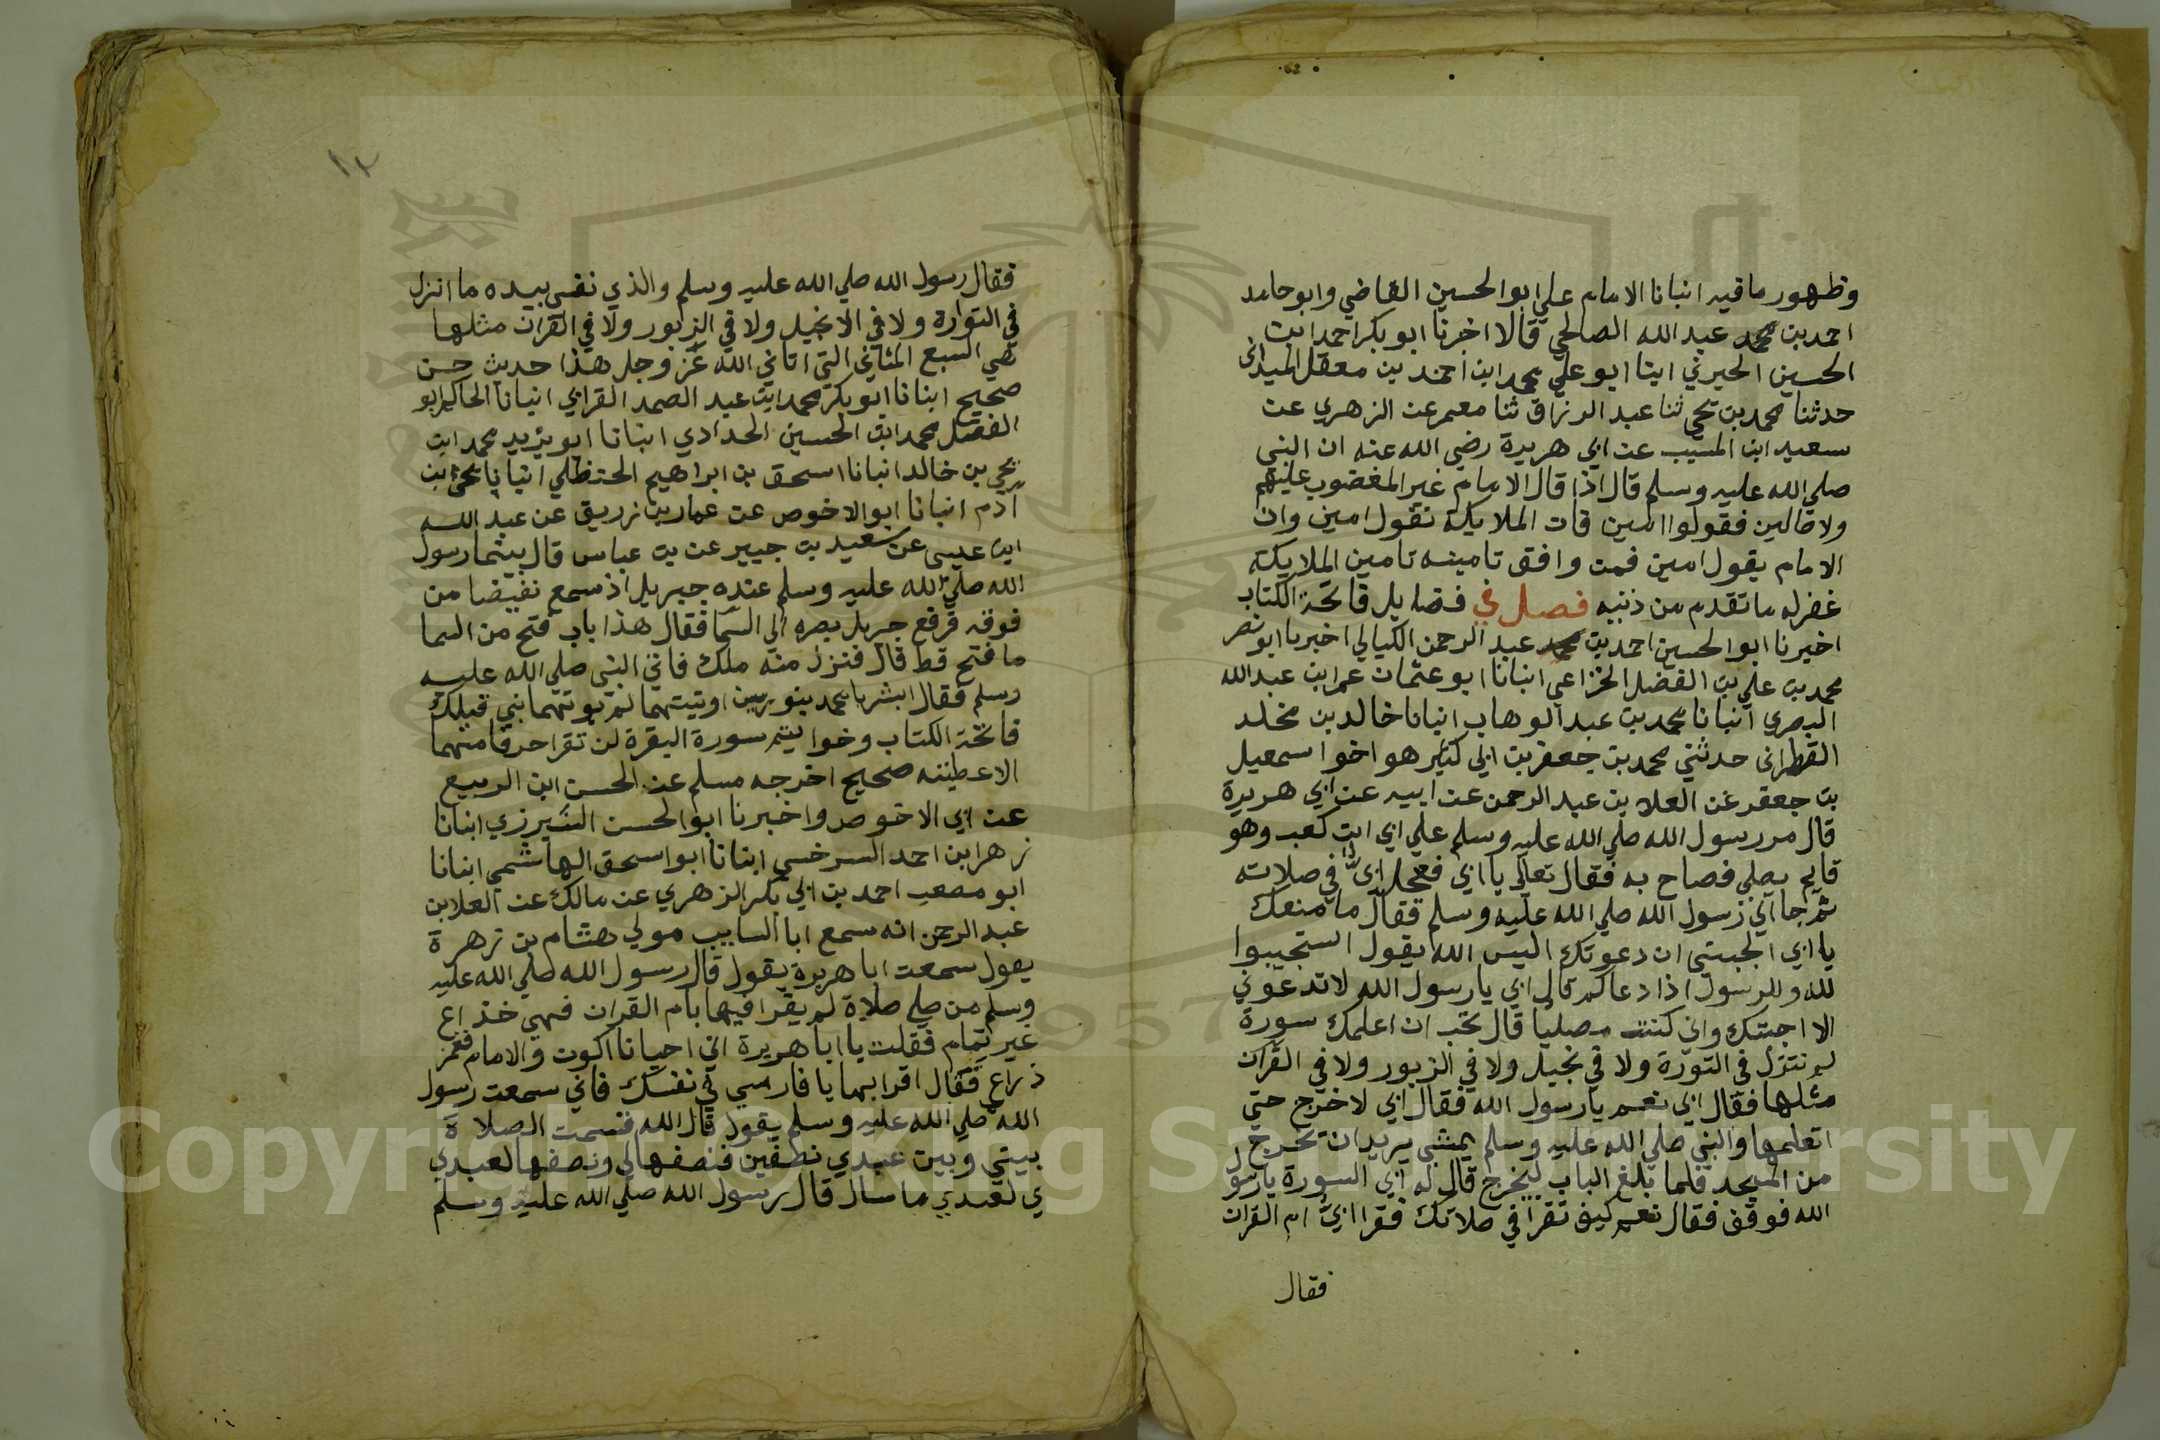 وظهور ما فيه انبانا الامام علي ابو الحسين القاضي وابو حامد
احمد بن محمد عبد الله الصالحي قالا اخبرنا ابو بكر احمد ابن
الحسين الحيري ابنا ابو علي محمد ابن احمد بن معقل الميداني
حدثنا محمد بن يحي ثنا عبد الرزاق ثنا معمر عن الزهري عن
سعيد ابن المسيب عن ابي هريرة رضي الله عنه ان النبي
صلي الله عليه وسلم قال اذا قال الامام غير المغضوب عليهم
ولا ضالين فقولوا امين فان الملايكة تقول امين وان
الامام يقول امين فمن وافق تامينه تامين الملايكة
غفر له ما تقدم من ذنبه فصل في فضايل فاتحة الكتاب
اخبرنا ابو الحسين احمد بن محمد عبد الرحمن الكيالي اخبرنا ابو نصر
محمد بن علي بن الفضل الخزاعي انبانا ابو عثمان عمر ابن عبد الله
البصري انبانا محمد بن عبد الوهاب انبانا خالد بن مخلد
القطراني حدثني محمد بن جعفر بن ابي كثير هو اخوا اسمعيل
بن جعفر عن العلا بن عبد الرحمن عن ابيه عن ابي هريرة
قال مر رسول الله صلي الله عليه وسلم علي ابي ابن كعب وهو
قايم يصلي فصاح به فقال تعالي يا ابي فعجل ابي في صلاته
ثم جا الي رسول الله صلي الله عليه وسلم فقال ما منعك
يا ابي اتجبتي ان دعوتك اليس الله يقول استجيبوا
لله وللرسول اذا دعاكم قال ابي يا رسول الله لا تدعوني
الا اجبتك واني كنت مصليا قال تحب ان اعلمك سورة
لم تنزل في التورة ولا في نجيل ولا في الزبور ولا في القران
مثلها فقال ابي نعم يا رسول الله فقال ابي لا خرج حتي
اتعلمها والنبي صلي الله عليه وسلم يمشي يريد ان يخرج
من المسجد فلما بلغ الباب ليخرج قال له ابي السورة يا رسول
الله فوقف فقال نعم كيف تقرا في صلاتك فقرا ابي ام القران
فقال
١٢
فقال رسول الله صلي الله عليه وسلم والذي نفسي بيده ما انزل
في التوارة ولا في الانجيل ولا في الزبور ولا في القران مثلها
هي السبع المثاني التي اتاني الله عز وجل هذا حديث حسن
صحيح ابنانا ابو بكر محمد ابن عبد الصمد القرابي انبانا الحاكم ابو
الفضل محمد ابن الحسين الحدادي ابنانا ابو يزيد محمد ابن
يحي بن خالد انبانا اسحق بن ابراهيم الحنظلي انبانا يحي بن
ادم انبانا ابو الاخوص عن عمار بن زريق عن عبد الله
ابن عيسى عن سعيد بن جبير عن بن عباس قال بينما رسول
الله صلي الله عليه وسلم عنده جبريل اذ سمع نقيضا من
فوقه فرفع جبريل بصره الي السما فقال هذا باب فتح من السما
ما فتح قط قال فنزل منه ملك فاتي النبي صلي الله عليه
وسلم فقال ابشر يا محمد بنورين اوتيتهما لم يوتهما نبي قبلك
فاتحة الكتاب وخواتيم سورة البقرة لن تقرا حرفا منهما
الا عطيته صحيح اخرجه مسلم عن الحسن ابن الربيع
عن ابي الاخوص واخبرنا ابو الحسن الشيرزي ابنانا
زهر ابن احمد السرخسي ابنانا ابو اسحق الهاشمي ابنانا
ابو مصعب احمد بن ابي بكر الزهري عن مالك عن العلا بن
عبد الرحمن انه سمع ابا السايب مولي هشام بن زهرة
يقول سمعت ابا هريرة يقول قال رسول الله صلي الله عليه
وسلم من صلي صلاة لم يقرا فيها بام القران فهي خذاع
غير تمام فقلت يا ابا هريرة اني احيانا اكون والامام فغمز
ذراعي فقال اقرا بها يا فارسي في نفسك فاني سمعت رسول
الله صلي الله عليه وسلم يقول قال الله قسمت الصلاة
بيني وبين عبدي نطفين فنصفها لي ونصفها لعبدي
ي لعبدي ما سال قال رسول الله صلي الله عليه وسلم
Copyright © King Saud University
1957